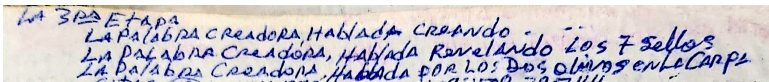 LA 3RA ETAPA
LA PALABRA CREADORA, HABLADA CREANDO - . .
LA PALABRA CREADORA, HABLADA REVELANDO LOS 7 SELLOS
LA PALABRA CREADORA, HABLADA POR LOS DOS OLIVOS EN LA CARPA